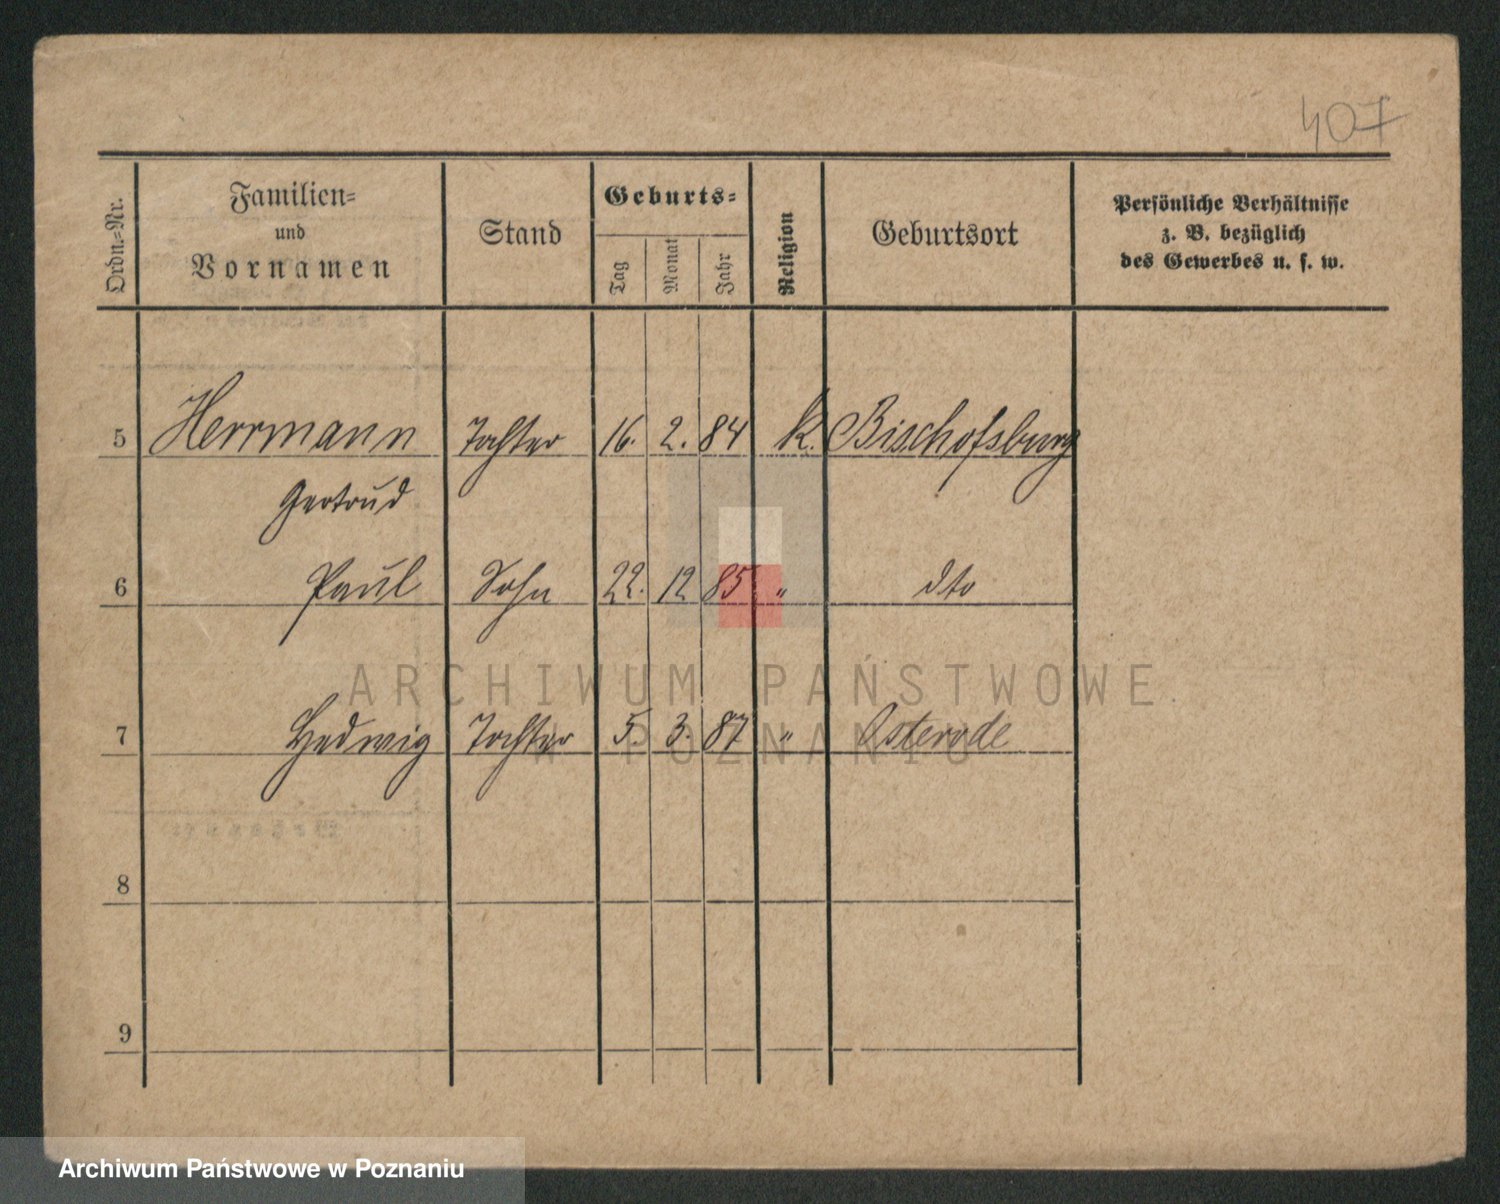 407
Ordn.-Nr.
Familien-
und
Vornamen
Stand
Geburts-
Tag
Monat
Jahr
Religion
Geburtsort
Persönliche Verhältnisse
z. B. bezüglich
des Gewerbes u. s. w.
5 Herrmann Tochter 16. 2. 84 k. Bischofsburg
Gertrud
6 Paul Sohn 22. 12 85 " dto
ARCHIWUM PAŃSTWOWE
7 Hedwig Tochter 5. 3. 87 " Osterode
W POZNANIU
8
9
Archiwum Państwowe w Poznaniu